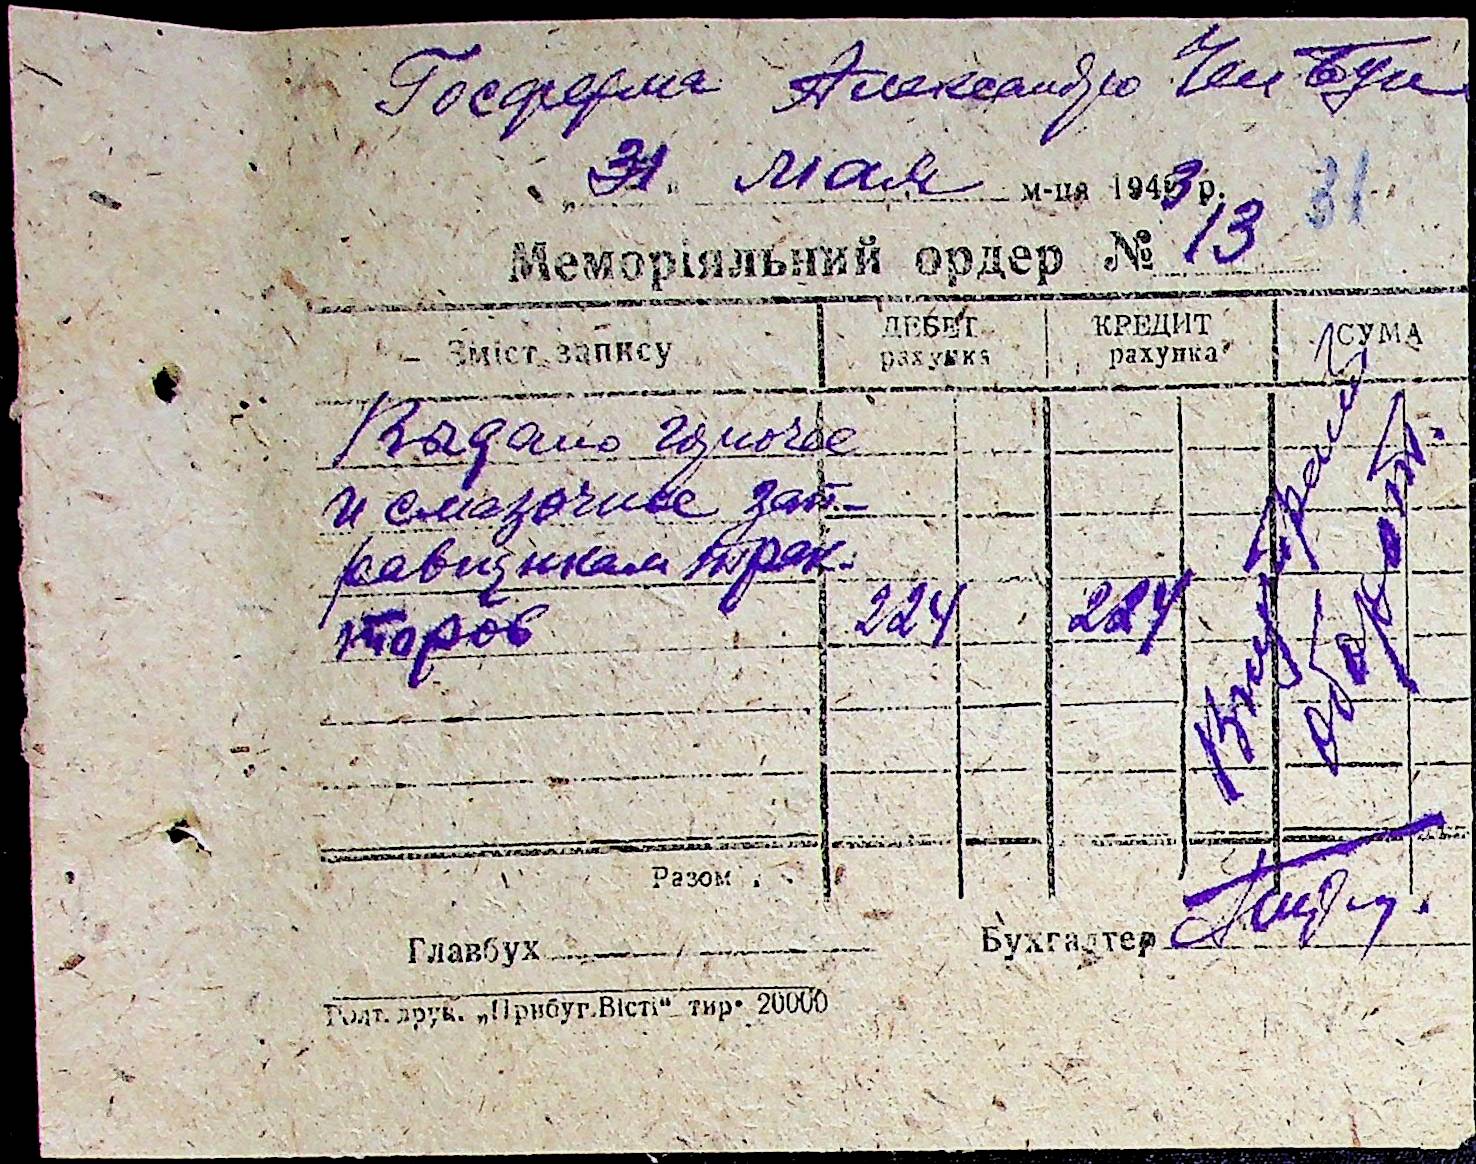 Госферма Александро
„31“ мая м-ця 1943 р. 31
Меморіяльний ордер № 13
Зміст запису ДЕБЕТ рахунка КРЕДИТ рахунка СУМА
Выдано горючее
и смазочное зап-
равщикам трак-
торов 224 224
Внутрений
оборот.
Разом
Главбух
Бухгалтер
Голт. друк. „Прибуг.Вісті“ тир. 20000